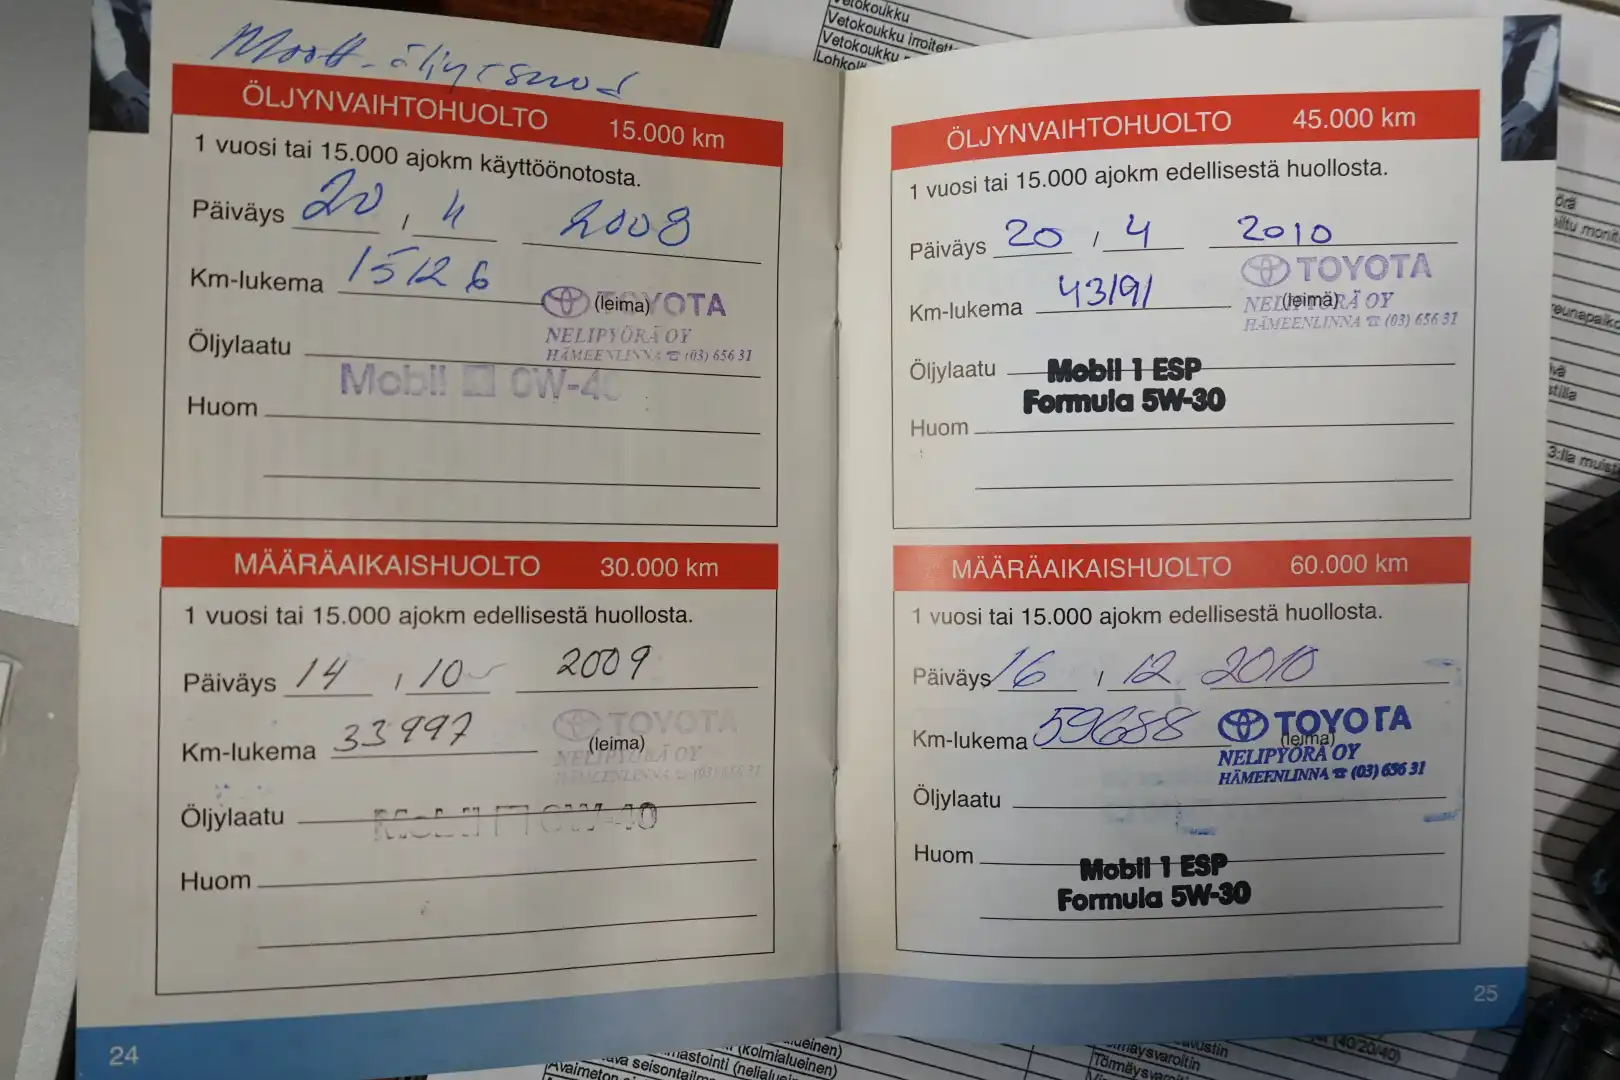 ÖLJYNVAIHTOHUOLTO 15.000 km
1 vuosi tai 15.000 ajokm käyttöönotosta.
Päiväys 20 / 4 2008
Km-lukema 15126
TOYOTA
(leima)
NELIPYÖRÄ OY
HÄMEENLINNA ☎ (03) 656 31
Öljylaatu
Mobil 1 0W-40
Huom
MÄÄRÄAIKAISHUOLTO 30.000 km
1 vuosi tai 15.000 ajokm edellisestä huollosta.
Päiväys 14 / 10 2009
Km-lukema 33997
TOYOTA
(leima)
NELIPYÖRÄ OY
HÄMEENLINNA ☎ (03) 656 31
Öljylaatu
Huom
24
ÖLJYNVAIHTOHUOLTO 45.000 km
1 vuosi tai 15.000 ajokm edellisestä huollosta.
Päiväys 20 / 4 2010
Km-lukema 43191
TOYOTA
(leima)
NELIPYÖRÄ OY
HÄMEENLINNA ☎ (03) 656 31
Öljylaatu Mobil 1 ESP
Formula 5W-30
Huom
MÄÄRÄAIKAISHUOLTO 60.000 km
1 vuosi tai 15.000 ajokm edellisestä huollosta.
Päiväys 16 / 12 2010
Km-lukema 59688
TOYOTA
(leima)
NELIPYÖRÄ OY
HÄMEENLINNA ☎ (03) 656 31
Öljylaatu
Huom Mobil 1 ESP
Formula 5W-30
25
Vetokoukku
Vetokoukku
(kolmialueinen)
(nelialueinen)
Törmäysvaroitin
(40/20/40)